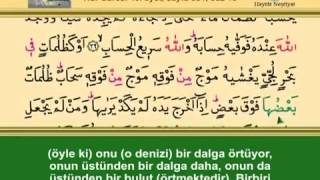 Hayrât Neşriyat
اللّٰهَ عِنْدَهُ فَوَفّٰيهُ حِسَابَهُ وَاللّٰهُ سَرِيعُ الْحِسَابِ ﴿٣٩﴾ اَوْ كَظُلُمَاتٍ
بَحْرٍ لُجِّيٍّ يَغْشٰيهُ مَوْجٌ مِنْ فَوْقِهِ مَوْجٌ مِنْ فَوْقِهِ سَحَابٌ ظُلُمَاتٌ
بَعْضُهَا فَوْقَ بَعْضٍ اِذَا اَخْرَجَ يَدَهُ لَمْ يَكَدْ يَرٰيهَا وَمَنْ لَمْ يَجْعَلِ
(öyle ki) onu (o denizi) bir dalga örtüyor,
onun üstünden bir dalga daha, onun da
üstünden bir bulut (örtmektedir). Birbiri